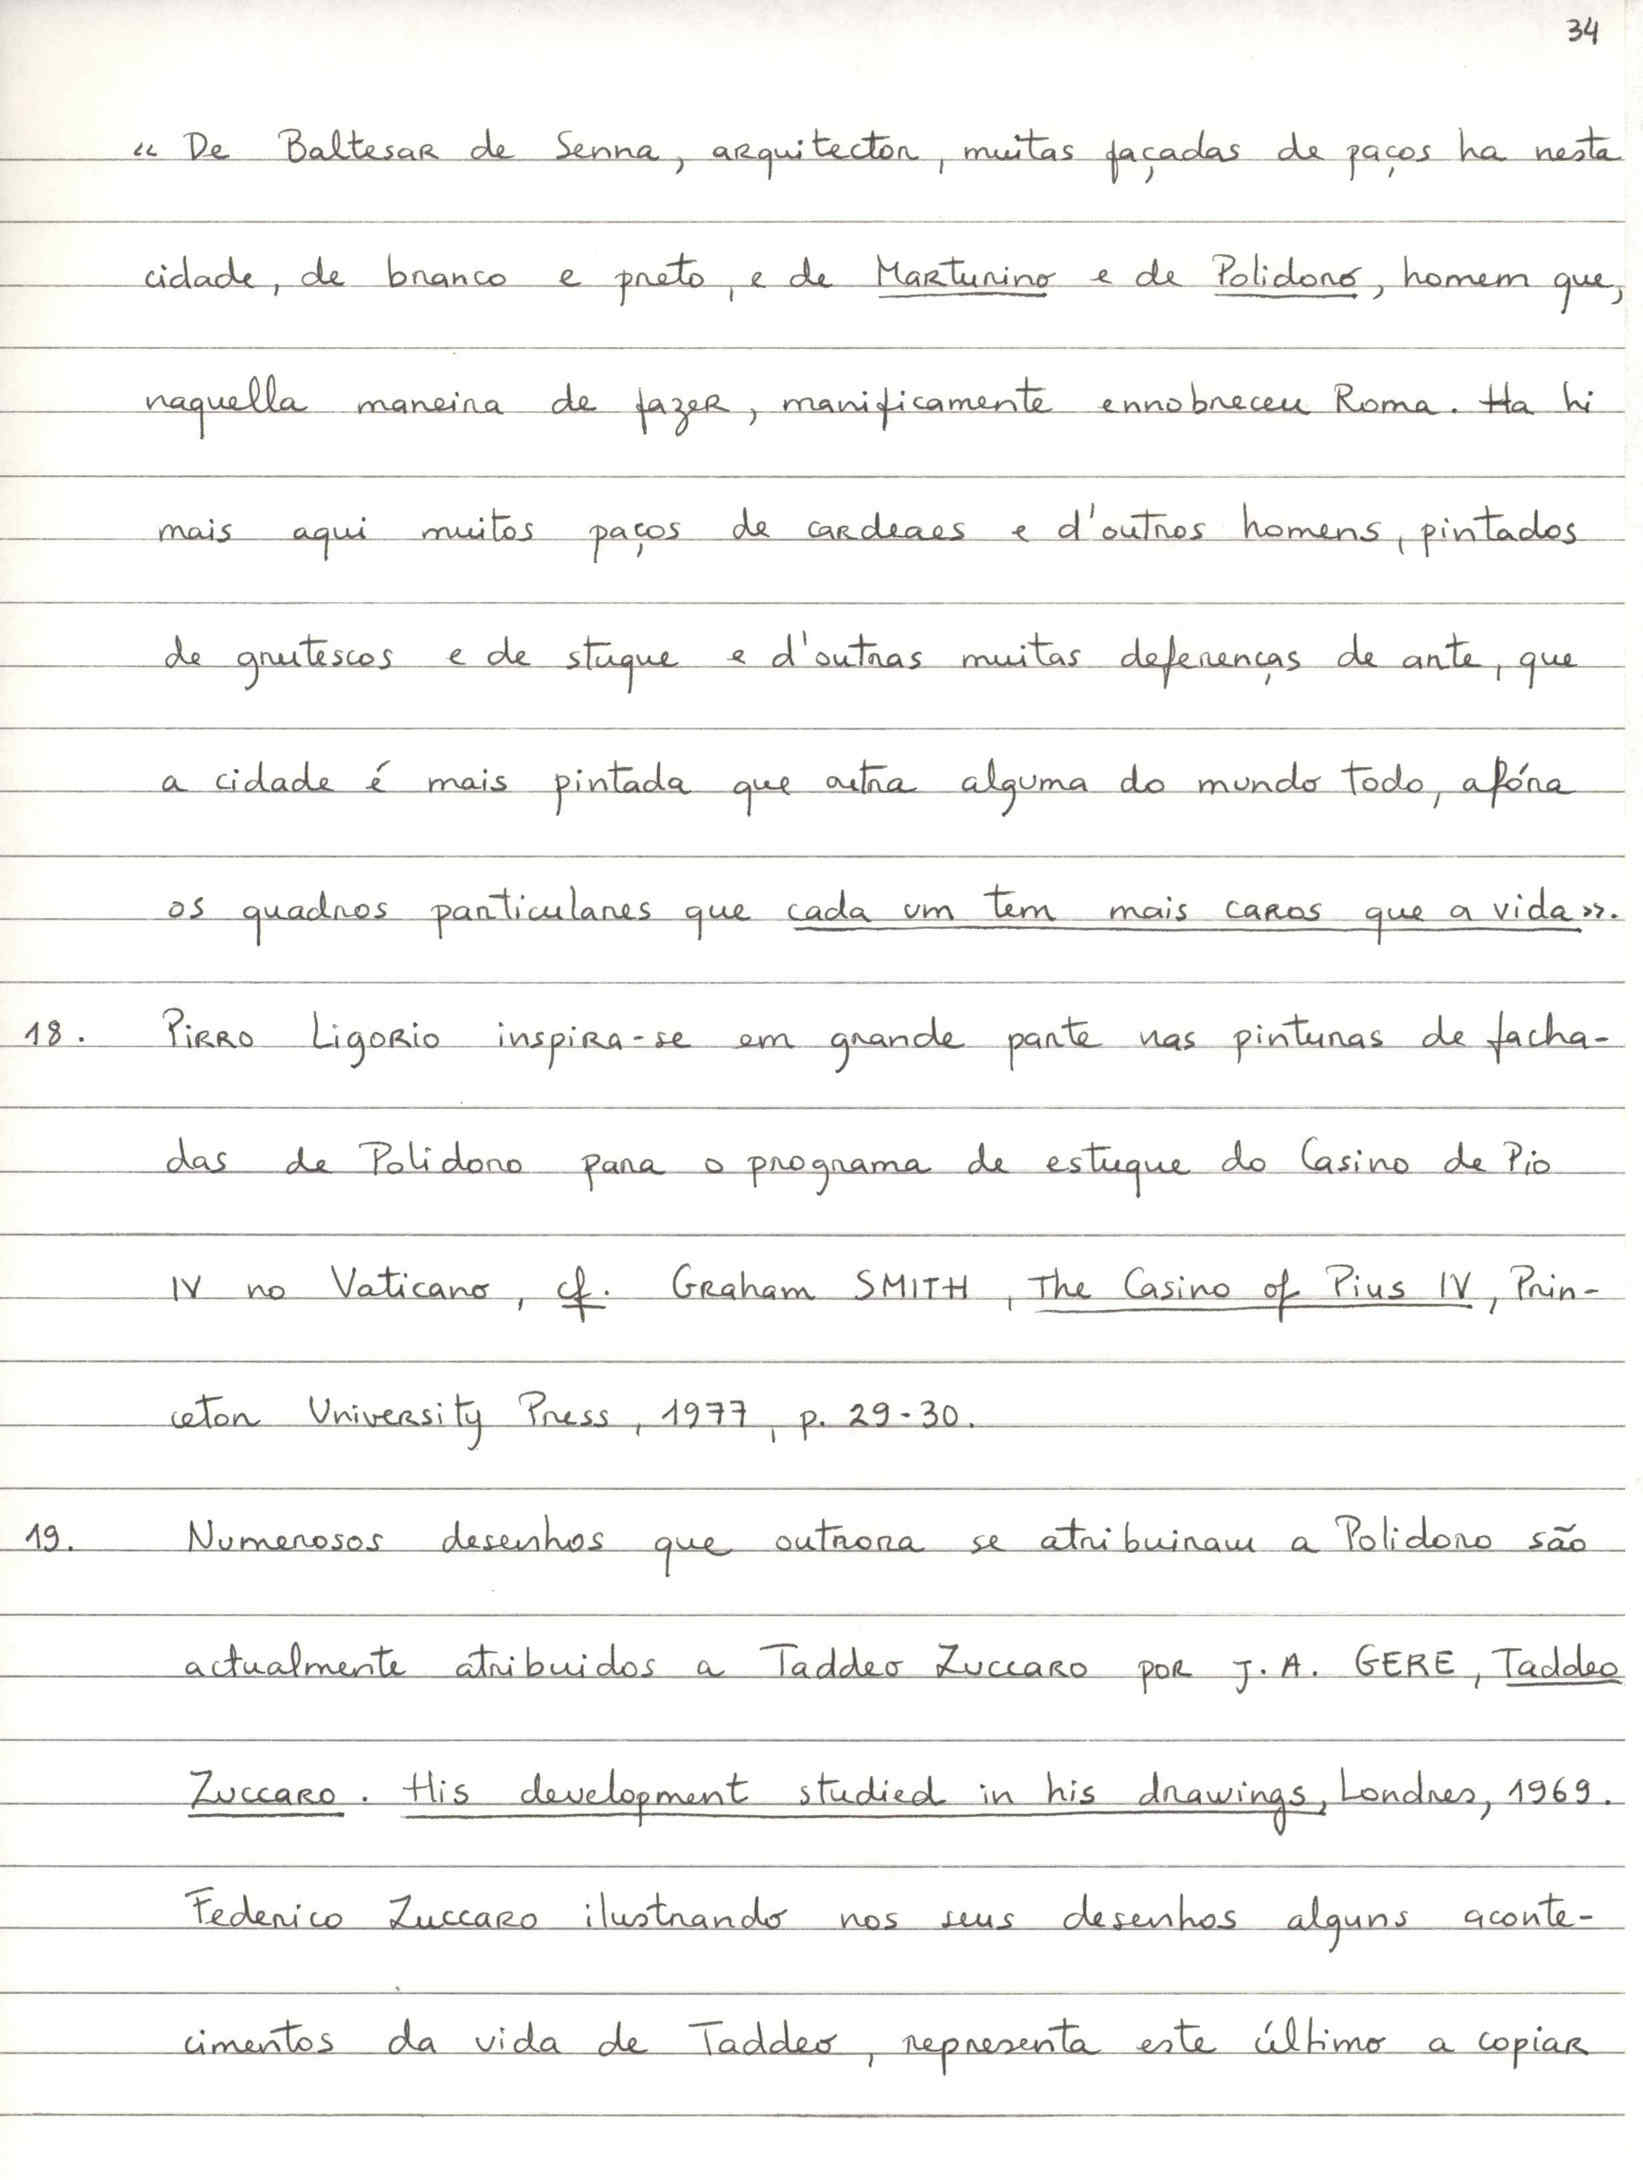 34
« De Baltesar de Senna, arquitector, muitas façadas de paços ha nesta
cidade, de branco e preto, e de Marturino e de Polidoro, homem que,
naquella maneira de fazer, manificamente ennobreceu Roma. Ha hi
mais aqui muitos paços de cardeaes e d'outros homens, pintados
de grutescos e de stuque e d'outras muitas deferenças de arte, que
a cidade é mais pintada que outra alguma do mundo todo, afóra
os quadros particulares que cada um tem mais caros que a vida».
18. Pirro Ligorio inspira-se em grande parte nas pinturas de facha-
das de Polidoro para o programa de estuque do Casino de Pio
IV no Vaticano, cf. Graham SMITH, The Casino of Pius IV, Prin-
ceton University Press, 1977, p. 29-30.
19. Numerosos desenhos que outrora se atribuiram a Polidoro são
actualmente atribuidos a Taddeo Zuccaro por J. A. GERE, Taddeo
Zuccaro. His development studied in his drawings, Londres, 1969.
Federico Zuccaro ilustrando nos seus desenhos alguns aconte-
cimentos da vida de Taddeo, representa este último a copiar